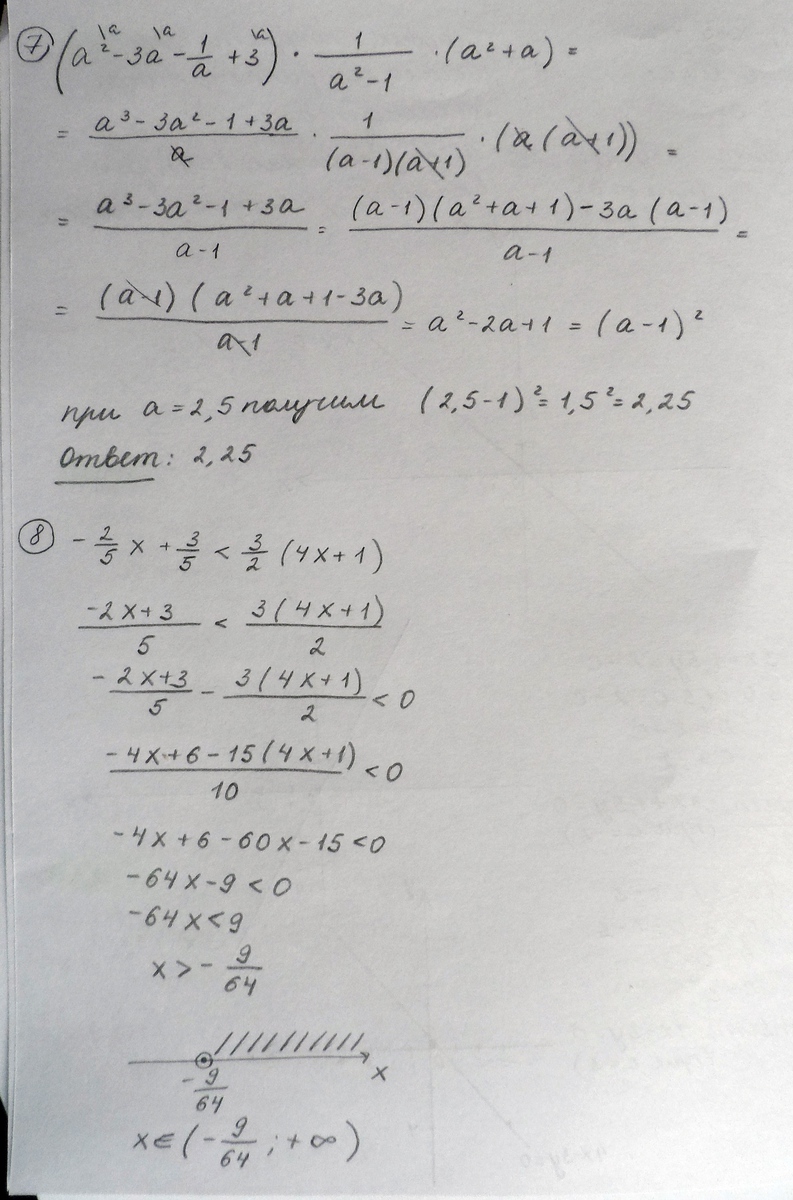 7 (a² \a - 3a \a - 1/a + 3 \a) · 1/(a² - 1) · (a² + a) =
= (a³ - 3a² - 1 + 3a)/a · 1/((a-1)(a+1)) · (a(a+1)) =
= (a³ - 3a² - 1 + 3a)/(a-1) = ((a-1)(a² + a + 1) - 3a(a-1))/(a-1) =
= ((a-1)(a² + a + 1 - 3a))/(a-1) = a² - 2a + 1 = (a-1)²
при a = 2,5 получим (2,5 - 1)² = 1,5² = 2,25
Ответ: 2,25
8 - 2/5 x + 3/5 < 3/2 (4x + 1)
(-2x + 3)/5 < 3(4x + 1)/2
- (2x + 3)/5 - 3(4x + 1)/2 < 0
(-4x + 6 - 15(4x + 1))/10 < 0
-4x + 6 - 60x - 15 < 0
-64x - 9 < 0
-64x < 9
x > - 9/64
- 9/64 x
x ∈ (- 9/64 ; +∞)